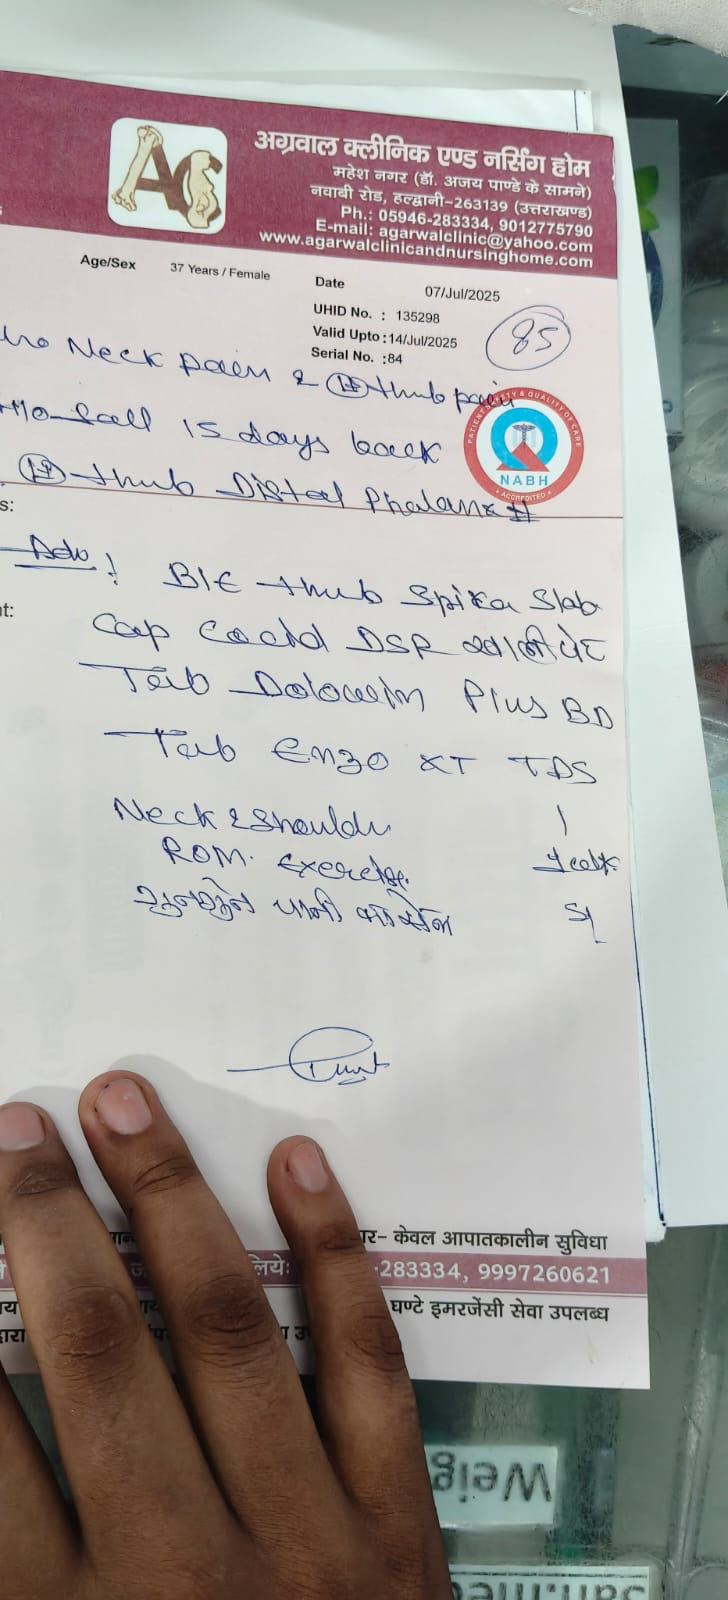 अग्रवाल क्लीनिक एण्ड नर्सिंग होम
महेश नगर (डॉ. अजय पाण्डे के सामने)
नवाबी रोड, हल्द्वानी-263139 (उत्तराखण्ड)
Ph.: 05946-283334, 9012775790
E-mail: agarwalclinic@yahoo.com
www.agarwalclinicandnursinghome.com
Age/Sex 37 Years / Female
Date 07/Jul/2025
UHID No. : 135298
Valid Upto :14/Jul/2025
Serial No. :84
85
Neck pain & thub pain
fall 15 days back
thub Distal Phalanx #
PATIENT SAFETY & QUALITY OF CARE
NABH
ACCREDITED
s:
Adv. B/E thub Spika Slab
nt:
Cap DSR खाली पेट
Tab Dolowin Plus BD
Tab Enzo XT TDS
Neck & Shouldr
ROM. Exercise
गुनगुने पानी
र- केवल आपातकालीन सुविधा
लिये: -283334, 9997260621
घण्टे इमरजेंसी सेवा उपलब्ध
Weig